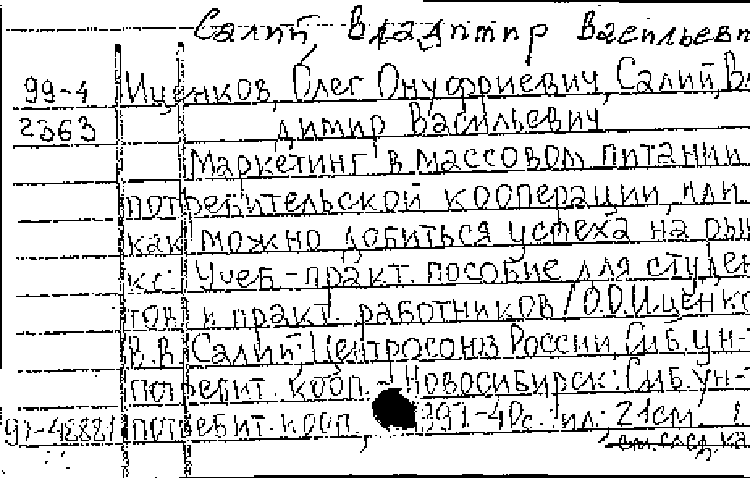 Салий, Владимир Васильеви
99-4 Иценков, Олег Онуфриевич, Салий, Вл
2363 димир Васильевич
Маркетинг в массовом питании
потребительской кооперации, или
как можно добиться успеха на рын
ке: Учеб.-практ. пособие для студен
тов и практ. работников / О.О. Иценко
В.В. Салий; Центросоюз России, Сиб. ун-т
потребит. кооп. - Новосибирск: Сиб. ун-т
97-48881 потребит. кооп., 1997-40с. ил.: 21см.
см. след. ка